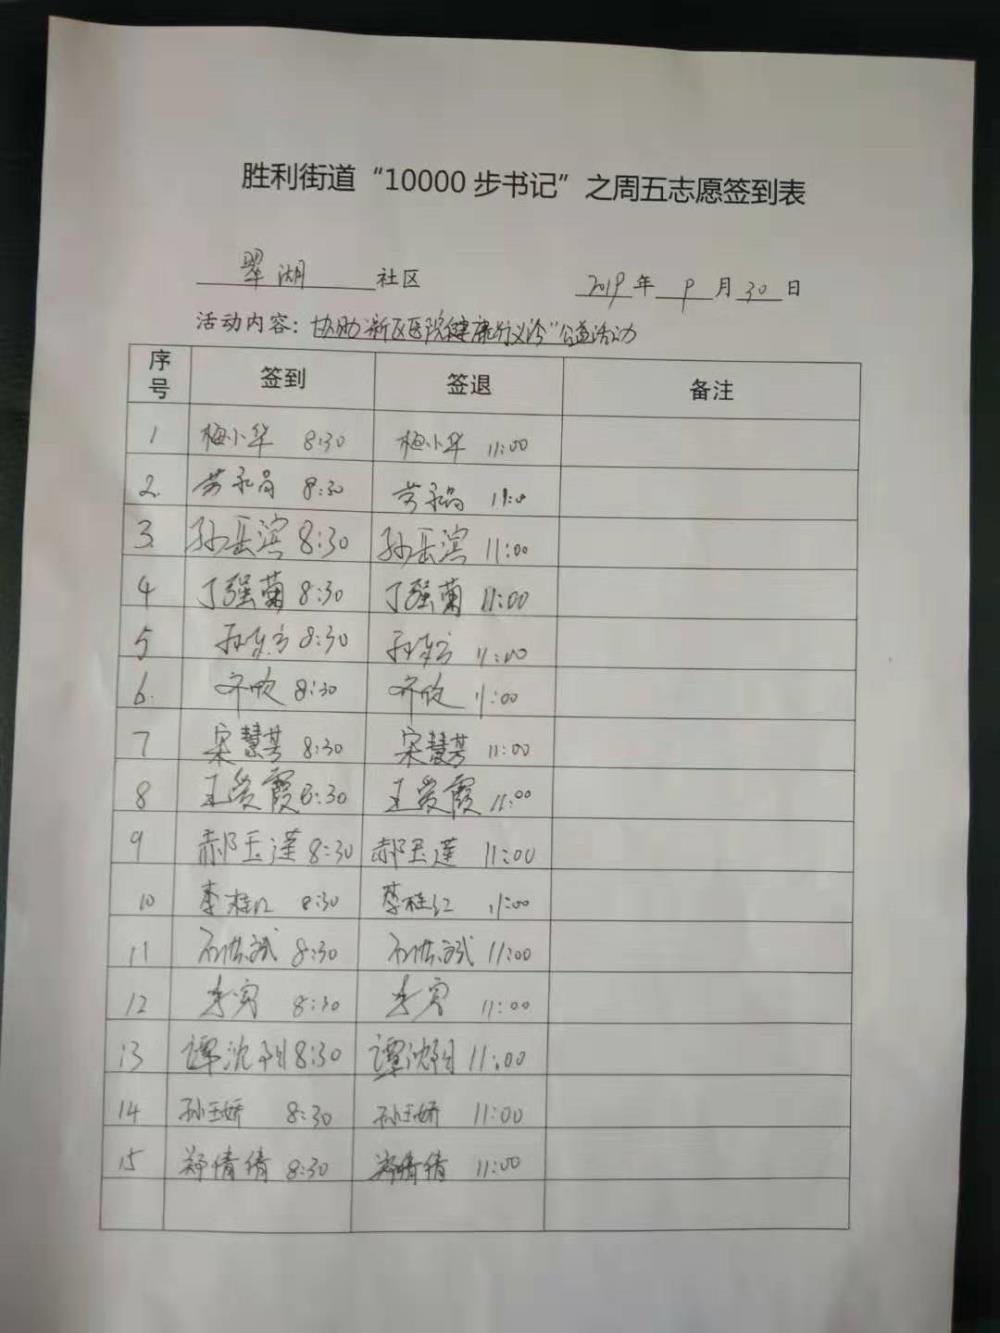 胜利街道“10000步书记”之周五志愿签到表
翠湖 社区 2019年 9月30日
活动内容：协助“新区医院健康行义诊”公益活动
序号 签到 签退 备注
1 梅小华 8:30 梅小华 11:00
2. 8:30 11:0
3. 孙岳滨 8:30 孙岳滨 11:00
4 丁强菊 8:30 丁强菊 11:00
5 孙东方 8:30 孙东方 11:00
6. 齐欣 8:30 齐欣 11:00
7 宋慧芳 8:30 宋慧芳 11:00
8 王爱霞 8:30 王爱霞 11:00
9 郝玉莲 8:30 郝玉莲 11:00
10 李桂红 8:30 李桂红 11:00
11 8:30 11:00
12 李宾 8:30 李宾 11:00
13 谭沈阳 8:30 谭沈阳 11:00
14 孙玉娇 8:30 孙玉娇 11:00
15 郑倩倩 8:30 郑倩倩 11:00